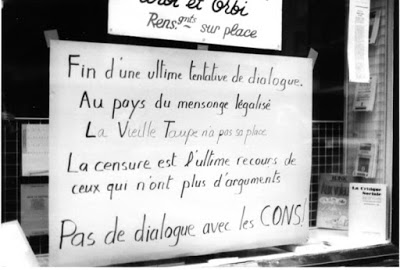 Urbi et Orbi
Rens.gnts sur place
Fin d'une ultime tentative de dialogue.
Au pays du mensonge légalisé
La Vieille Taupe n'a pas sa place
La censure est l'ultime recours de
ceux qui n'ont plus d'arguments
Pas de dialogue avec les CONS!
La Critique
Sociale